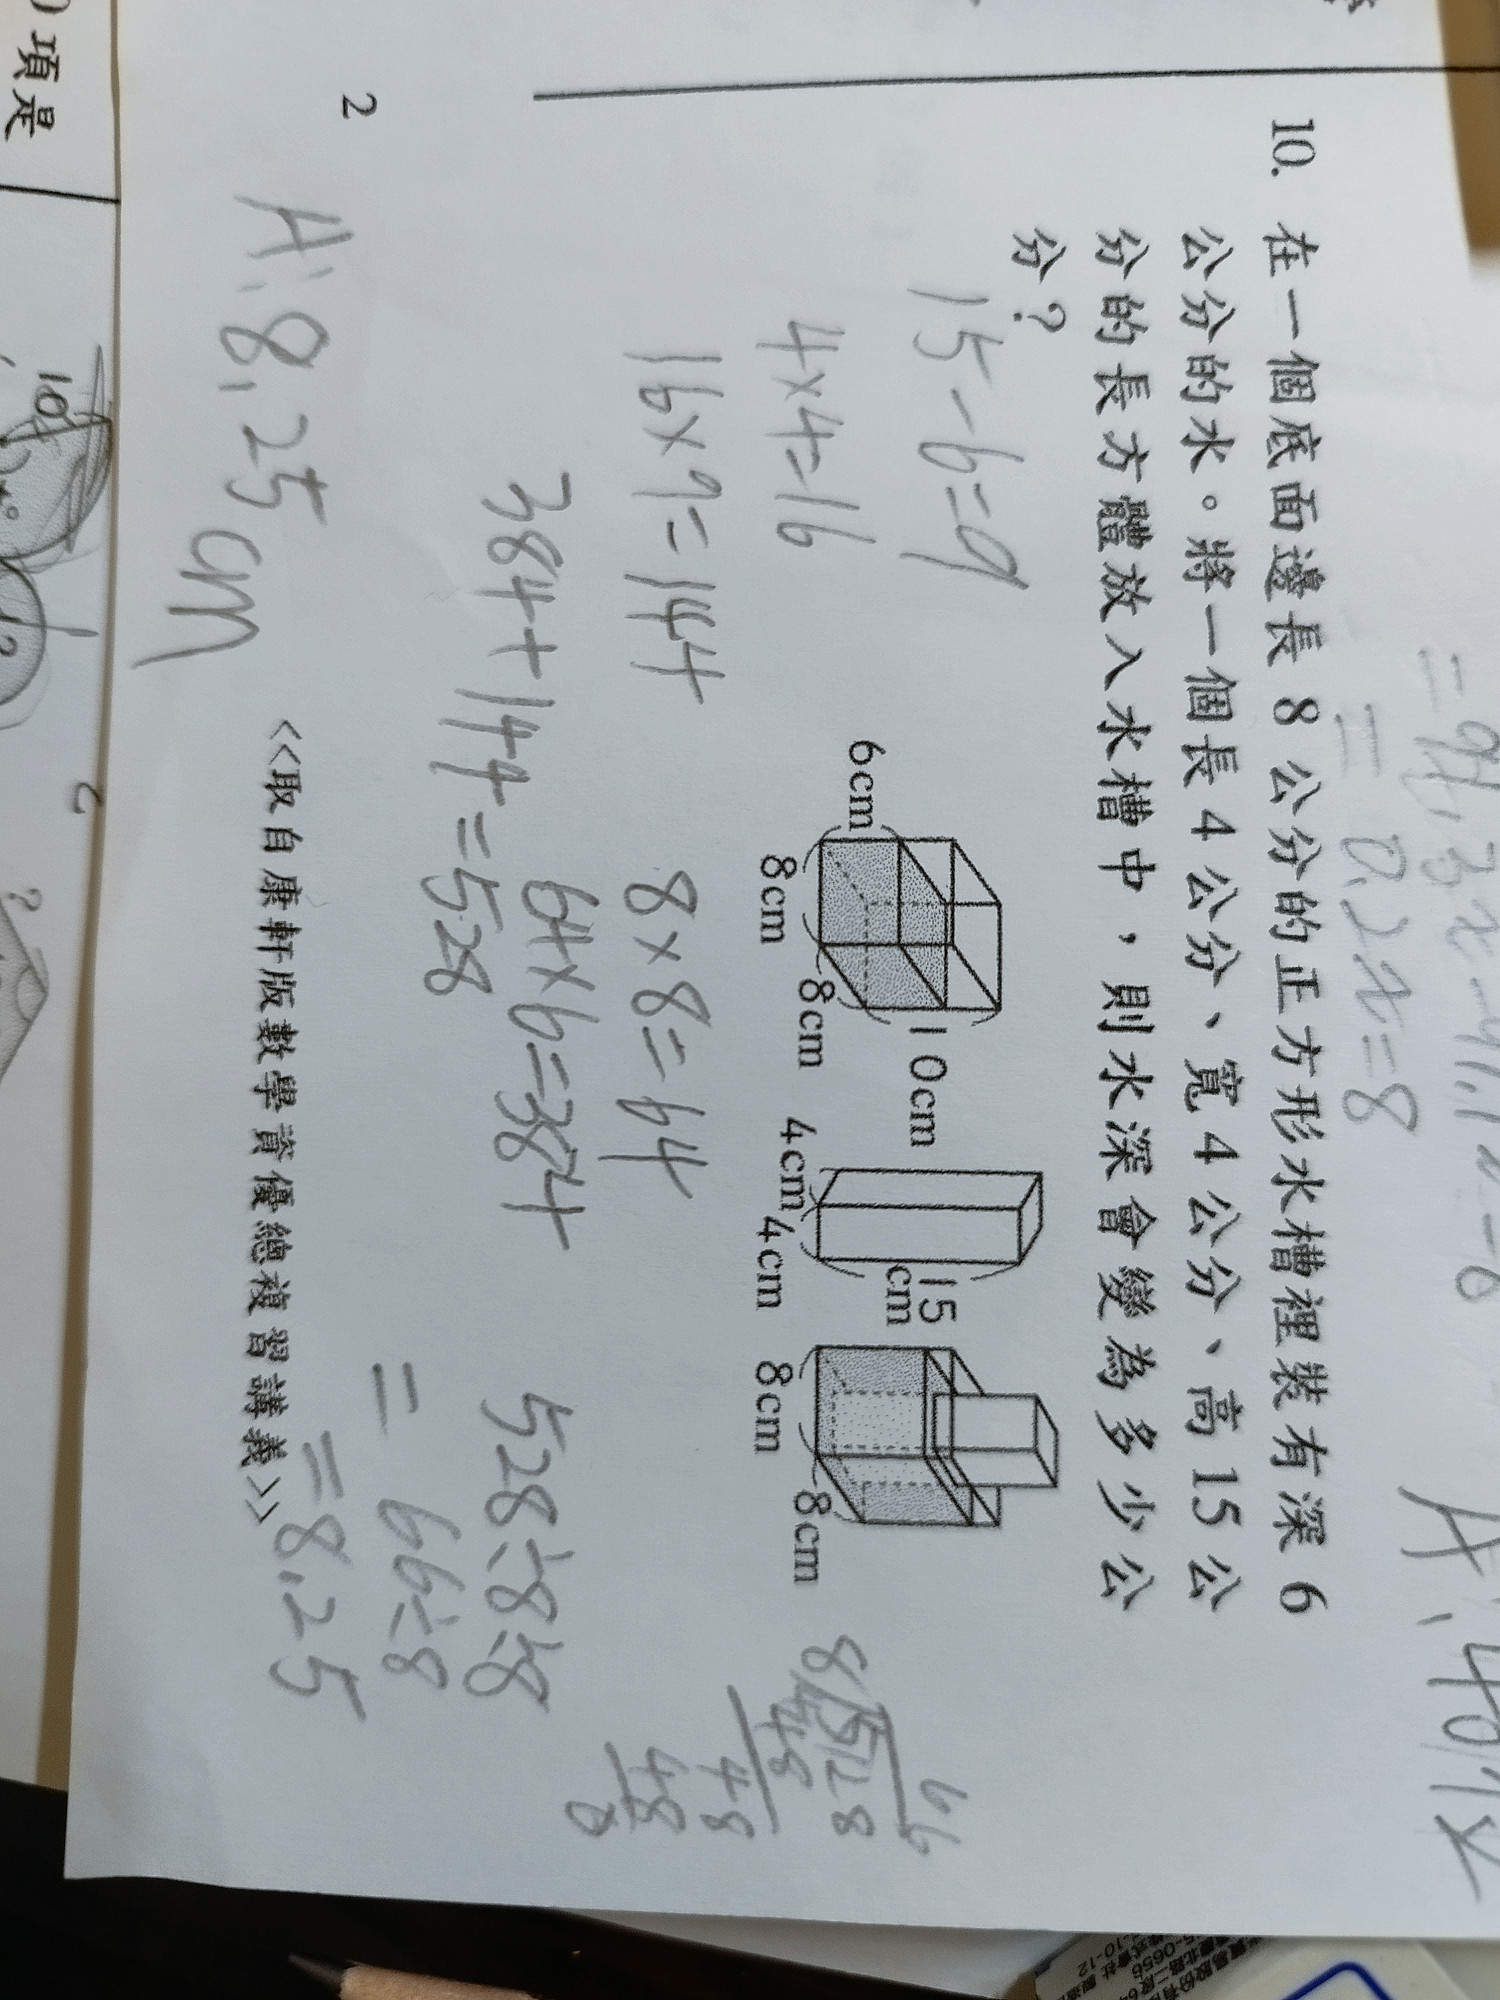 10. 在一個底面邊長 8 公分的正方形水槽裡裝有深 6
公分的水。將一個長 4 公分、寬 4 公分、高 15 公
分的長方體放入水槽中，則水深會變為多少公
分？
15-6=9
4×4=16
16×9=144
6cm
8cm
8cm
10cm
4cm
4cm
15
cm
8cm
8cm
8×8=64
64×6=384
384+144=528
528÷8÷8
=66÷8
=8.25
66
8
528
48
48
48
0
A:8.25cm
<<取自康軒版數學資優總複習講義>>
2
=0.2x=8
項是
10
?